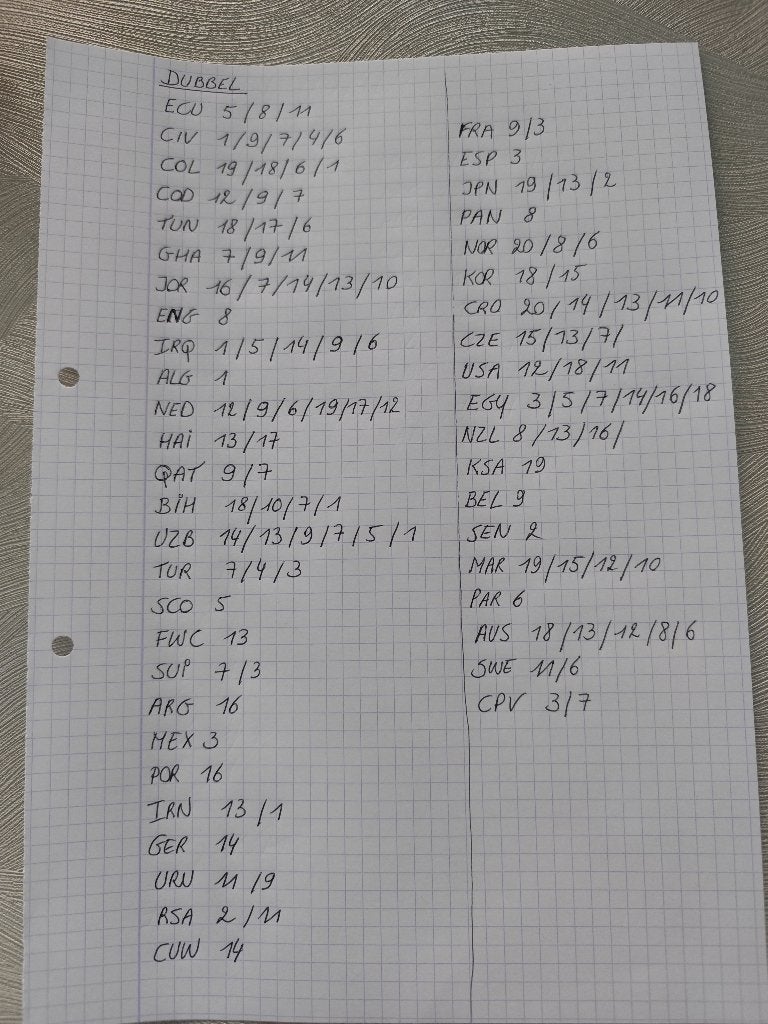 DUBBEL
ECU 5/8/11
CIV 1/9/7/4/6
COL 19/18/6/1
COD 12/9/7
TUN 18/17/6
GHA 7/9/11
JOR 16/7/14/13/10
ENG 8
IRQ 1/5/14/9/6
ALG 1
NED 12/9/6/19/17/12
HAi 13/17
QAT 9/7
BiH 18/10/7/1
UZB 14/13/9/7/5/1
TUR 7/4/3
SCO 5
FWC 13
SUi 7/3
ARG 16
MEX 3
POR 16
IRN 13/1
GER 14
URU 11/9
RSA 2/11
CUW 14
FRA 9/3
ESP 3
JPN 19/13/2
PAN 8
NOR 20/8/6
KOR 18/15
CRO 20/14/13/11/10
CZE 15/13/7/
USA 12/18/11
EGY 3/5/7/14/16/18
NZL 8/13/16/
KSA 19
BEL 9
SEN 2
MAR 19/15/12/10
PAR 6
AUS 18/13/12/8/6
SWE 11/6
CPV 3/7